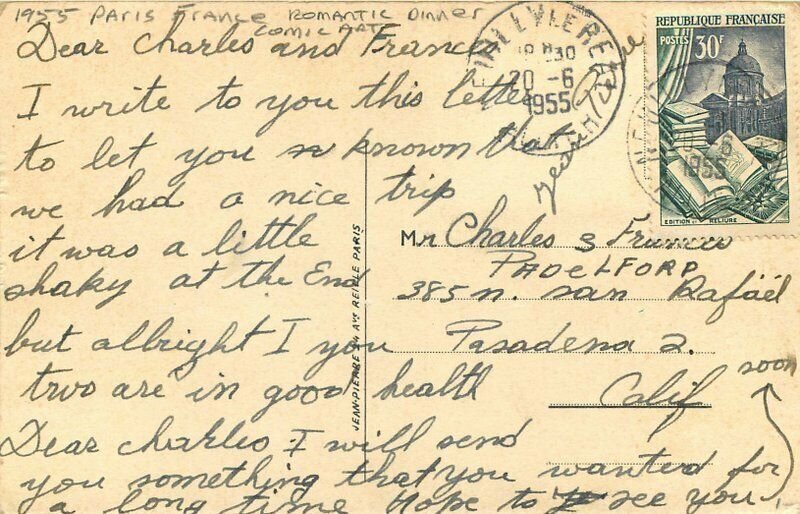 1955 PARIS FRANCE ROMANTIC DINNER
COMIC ART
Dear Charles and Francis
I write to you this letter
to let you known that
we had a nice trip
it was a little
shaky at the End
but allright I you
two are in good health
Dear Charles I will send
you something that you wanted for
a long time Hope to see you
soon
30
20 -6
1955
REPUBLIQUE FRANÇAISE
POSTES 30F
EDITION ET RELIURE
6
1955
JEAN-PIERRE AVE REILLE PARIS
Mr Charles & Francis
PADELFORD
385 n. san Rafaël
Pasadena 2.
Calif